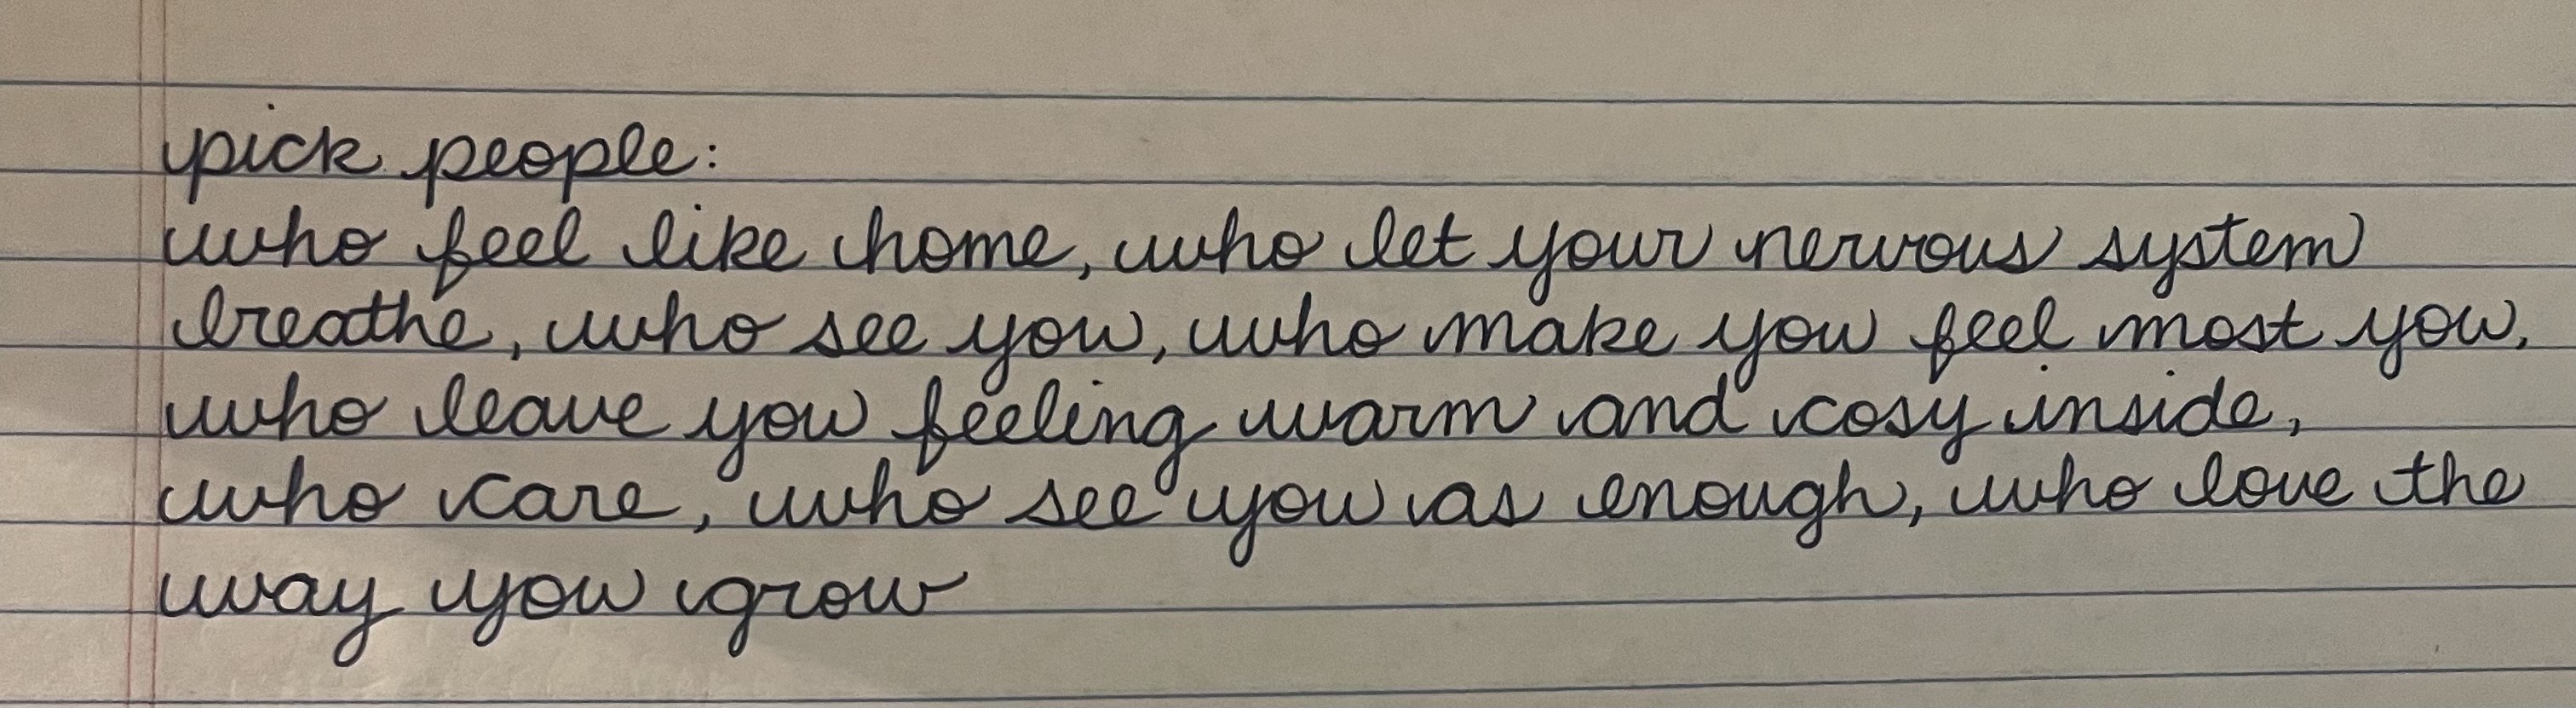 pick people:
who feel like home, who let your nervous system
breathe, who see you, who make you feel most you,
who leave you feeling warm and cosy inside,
who care, who see you as enough, who love the
way you grow